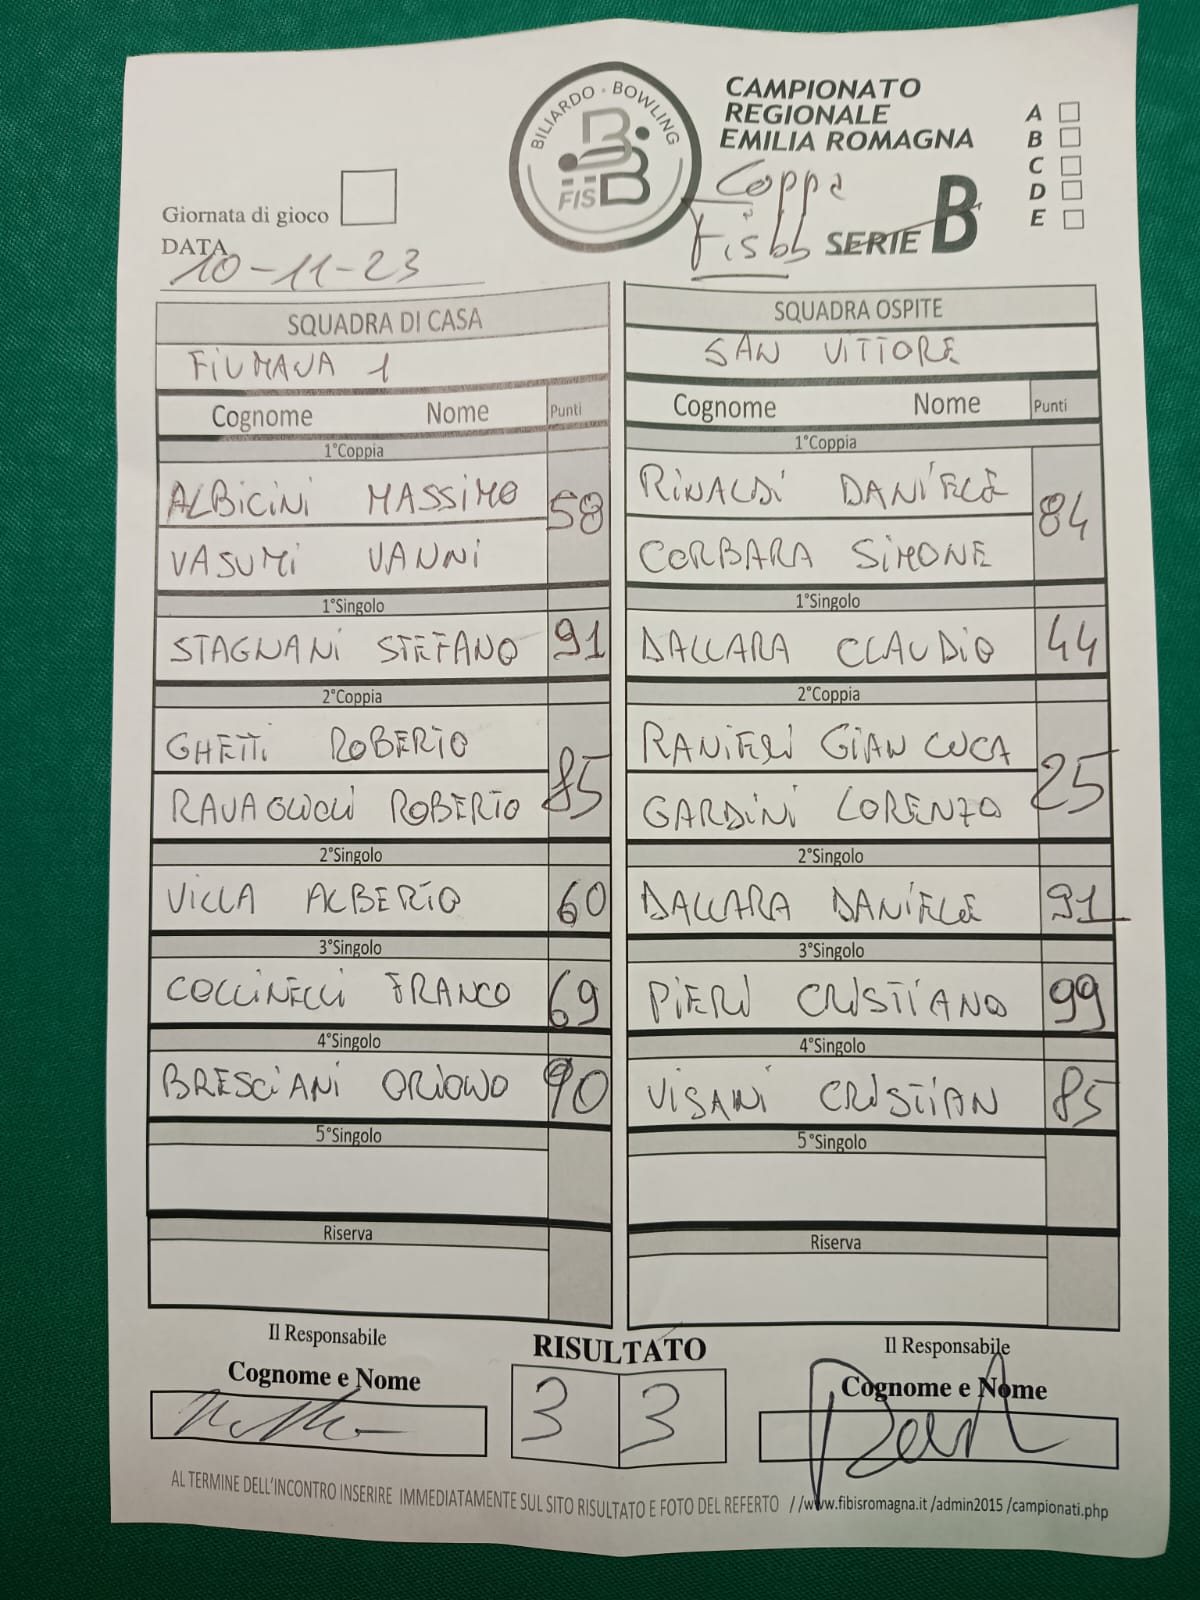 BILIARDO - BOWLING
FISBB
CAMPIONATO
REGIONALE
EMILIA ROMAGNA
Coppa
Fisbb SERIE B
A
B
C
D
E
Giornata di gioco
DATA
10-11-23
SQUADRA DI CASA
FIUMANA 1
Cognome Nome Punti
1°Coppia
ALBICINI MASSIMO
58
VASUMI VANNI
1°Singolo
STAGNANI STEFANO 91
2°Coppia
GHETTI ROBERTO
85
RAVAGLIOLI ROBERTO
2°Singolo
VILLA ALBERTO 60
3°Singolo
COLLINELLI FRANCO 69
4°Singolo
BRESCIANI ORIONO 90
5°Singolo
Riserva
SQUADRA OSPITE
SAN VITTORE
Cognome Nome Punti
1°Coppia
RINALDI DANIELE
84
CORBARA SIMONE
1°Singolo
DALLARA CLAUDIO 44
2°Coppia
RANIERI GIAN LUCA
25
GARDINI LORENZO
2°Singolo
DALLARA DANIELE 91
3°Singolo
PIERI CRISTIANO 99
4°Singolo
VISANI CRISTIAN 85
5°Singolo
Riserva
Il Responsabile
Cognome e Nome
RISULTATO
3 3
Il Responsabile
Cognome e Nome
AL TERMINE DELL'INCONTRO INSERIRE IMMEDIATAMENTE SUL SITO RISULTATO E FOTO DEL REFERTO //www.fibisromagna.it /admin2015 /campionati.php